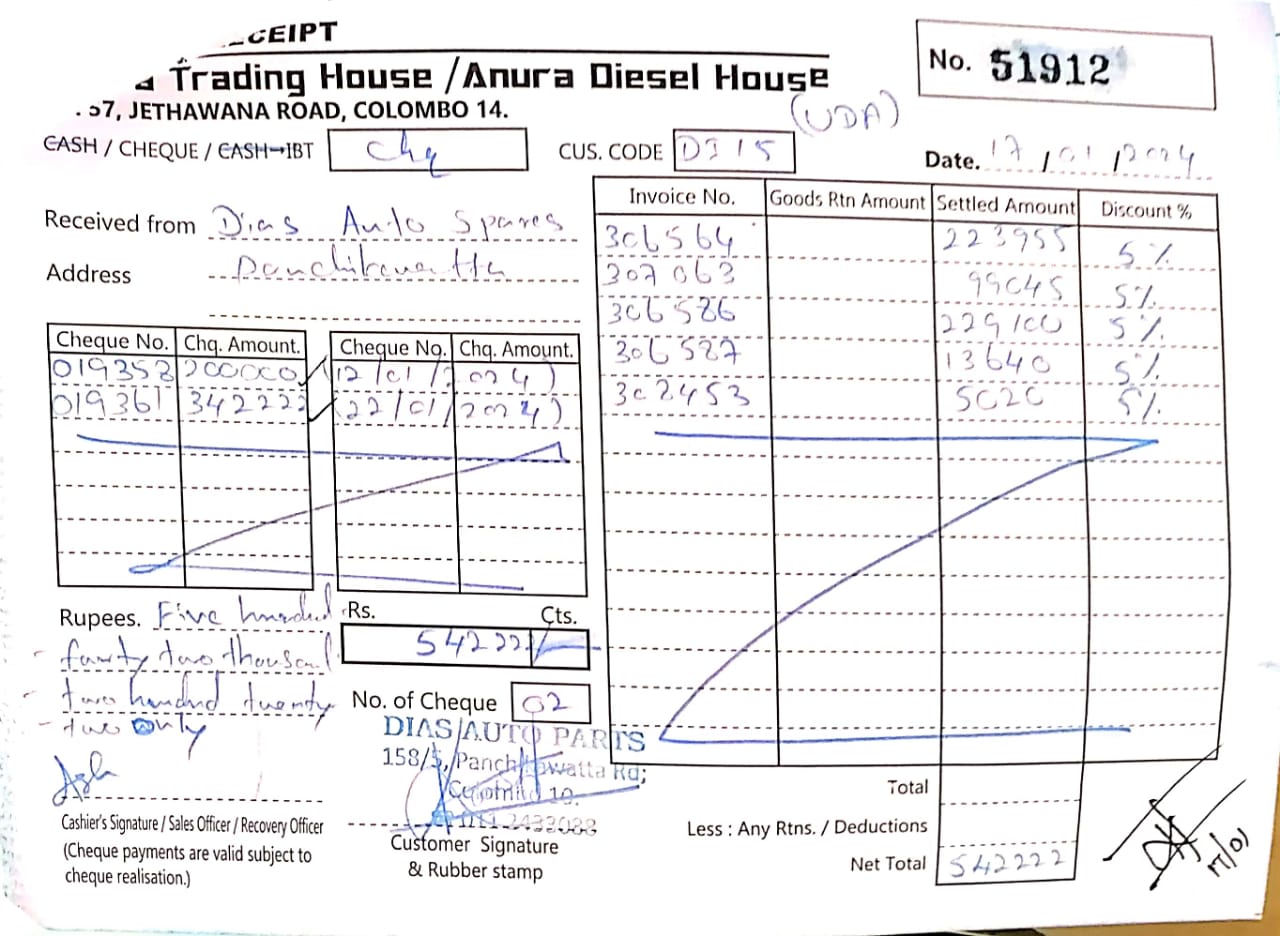 Trading House /Anura Diesel House
57, JETHAWANA ROAD, COLOMBO 14.
No. 51912
(UDA)
CASH / CHEQUE / CASH-IBT Chq
CUS. CODE DJ15
Date. 17/01/2024
Received from Dias Auto Spares
Address
Invoice No. Goods Rtn Amount Settled Amount Discount %
306564 223955 5%
307063 99045 5%
306586 229100 5%
306587 13640 5%
302453 5020 5%
Cheque No. Chq. Amount. Cheque No. Chq. Amount.
200000 (12/01/2024)
019361 342222 (22/01/2024)
Rupees. Five hundred
fourty two thousand
two hundred twenty
two only
Rs. Cts.
542222/-
No. of Cheque 02
DIAS AUTO PARTS
158/ Panchikawatta Rd;
Colombo 10.
Cashier's Signature / Sales Officer / Recovery Officer
(Cheque payments are valid subject to
cheque realisation.)
Customer Signature
& Rubber stamp
Total
Less : Any Rtns. / Deductions
Net Total 542222